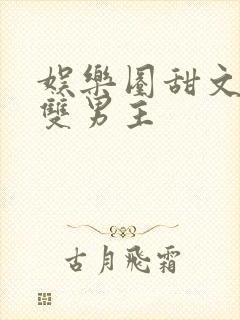 娛樂圈甜文
雙男主
古月飛霜